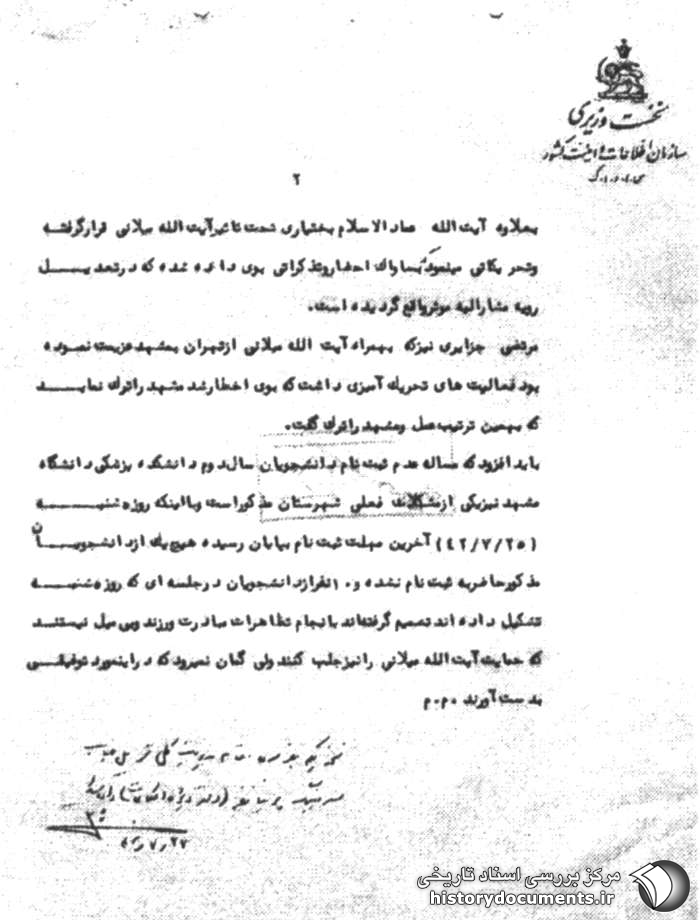 نخست وزیری
سازمان اطلاعات و امنیت کشور
س.ا.و.ا.ک
۲
بعلاوه آیت الله عماد الاسلام بختیاری تحت تاثیر آیت الله میلانی قرار گرفته
وتحریکاتی مینمود که بساواك احضار وتذکراتی بوی داده شده که در تعدیل
رویه مشارالیه موثر واقع گردیده است.
مرتضی جزایری نیز که بهمراه آیت الله میلانی از تهران بمشهد عزیمت نموده
بود فعالیت های تحریك آمیزی داشت که بوی اخطار شد مشهد را ترك نماید
که بهمین ترتیب عمل ومشهد را ترك گفت.
باید افزود که مساله عدم ثبت نام دانشجویان سال دوم دانشکده پزشکی دانشگاه
مشهد نیز یکی از مشکلات فعلی شهرستان مذکور است وبا اینکه روز شنبه
(۴۲/۷/۲۵) آخرین مهلت ثبت نام بپایان رسیده هیچیك از دانشجویان
مذکور حاضر به ثبت نام نشده و۱۰نفر از دانشجویان در جلسه ای که روز شنبه
تشکیل داده اند تصمیم گرفته‌اند بانجام تظاهرات مبادرت ورزند وبی میل نیستند
که حمایت آیت الله میلانی را نیز جلب کنند ولی گمان نمیرود که در اینمورد توفیقی
بدست آورند .م.م
۷/۲۷
مرکز بررسی اسناد تاریخی
historydocuments.ir